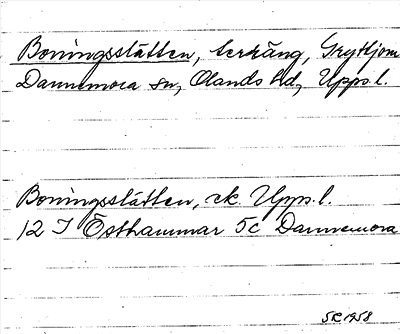 Boningsslätten, terräng, Gryttjom
Dannemora sn, Olands hd, Upps. l.
Boningsslätten, ek. Upps. l.
12 I Östhammar 5c Dannemora
SR 1958